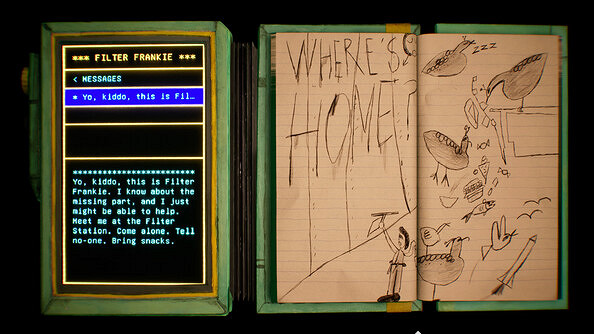 *** FILTER FRANKIE ***
< MESSAGES
* Yo, kiddo, this is Fil…
************************
Yo, kiddo, this is Filter
Frankie. I know about the
missing part, and I just
might be able to help.
Meet me at the Filter
Station. Come alone. Tell
no-one. Bring snacks.
WHERE'S
HOME?
zzz